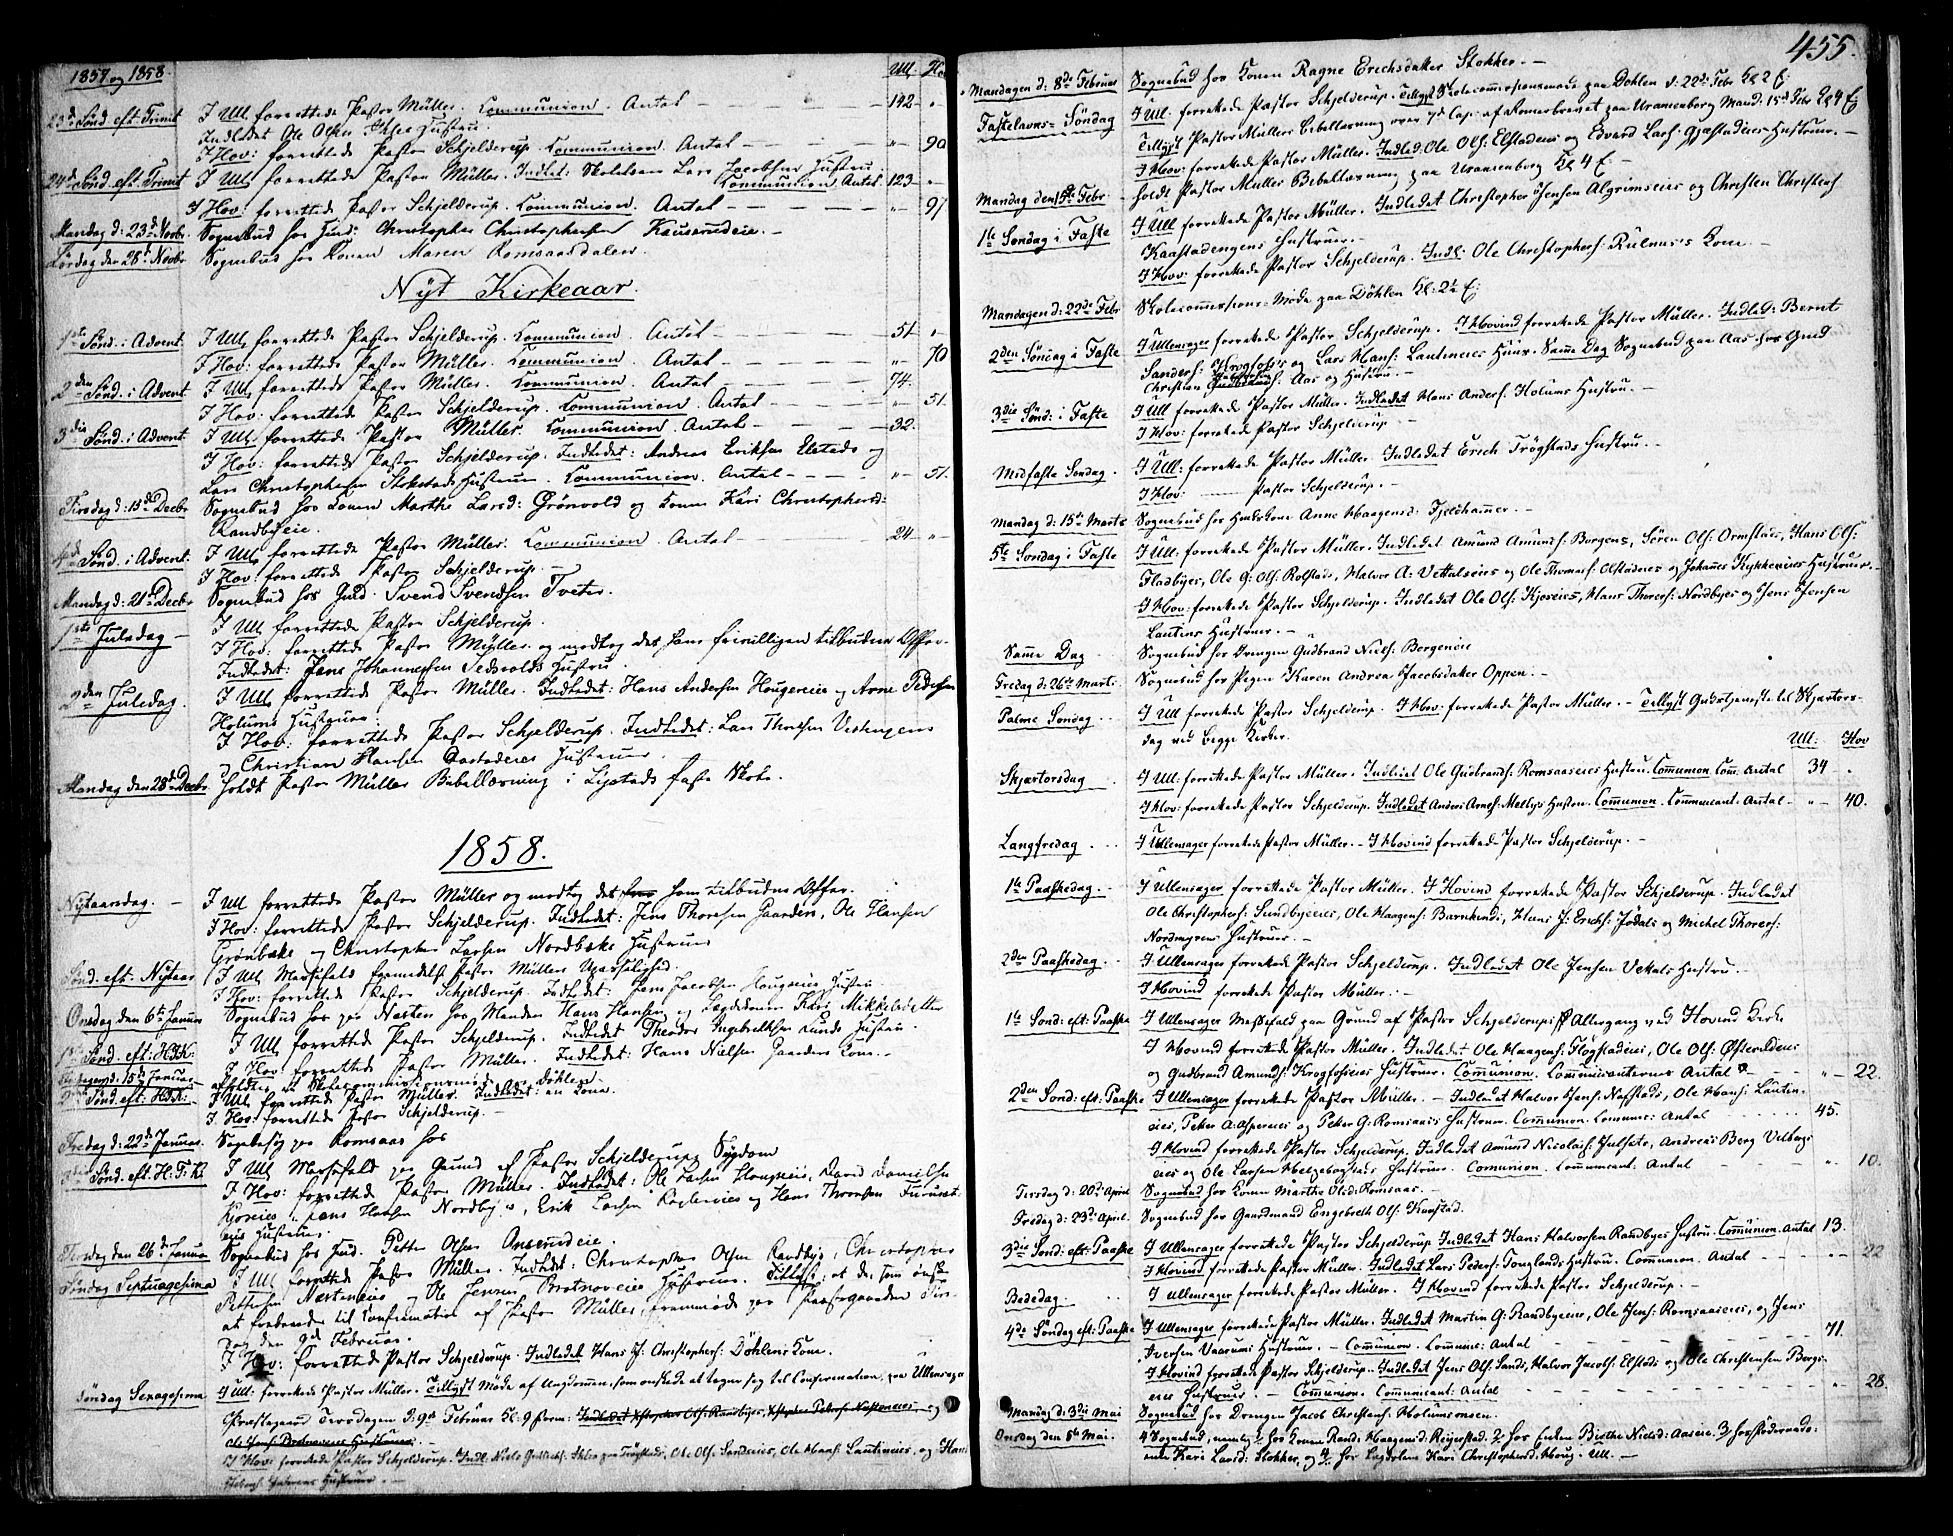 1857 og 1858. Ull. Ho
23de Sønd. eft: Trinit I Ull forrettede Pastor Müller. Communion. Antal — 142 "
Indledet Ole Olsen Hustru.
I Hov: forrettede Pastor Schjelderup. Communion. Antal — " 90
24de Sønd. eft. Trinit I Ull forrettede Pastor Müller. Indled: Lars Jacobsen Hustru
Communion Antal 123 "
I Hov: forrettede Pastor Schjelderup. Communion. Antal — " 97
Mandag d: 23de Novbr. Sognebud hos Christopher Christophersen
Lørdag den 28de Novbr Sognebud hos Konen Maren Romsaasdalen.
Nyt Kirkeaar.
1ste Sønd. i Advent I Ull forrettede Pastor Schjelderup. Communion. Antal — 51 "
I Hov: forrettede Pastor Müller. Communion. Antal — " 70
2den Sønd. i Advent I Ull forrettede Pastor Müller. Communion. Antal — 74. "
I Hov: forrettede Pastor Schjelderup. Communion. Antal — " 51.
3die Sønd. i Advent I Ull forrettede Pastor Müller. Communion. Antal — 32. "
I Hov: forrettede Pastor Schjelderup. Indledet: Andreas Eriksen Elstads og
Lars Christophersen Stokstads Hustruer. Communion. Antal — " 51.
Tirsdag d: 15de Decbr Sognebud hos Konen Marthe Larsd: Grønvold og Konen Kari Christophersd:
Randbyeie.
4de Sønd. i Advent. I Ull forrettede Pastor Müller. Communion. Antal — 24 "
I Hov: forrettede Pastor Schjelderup. —
Mandag d: 21de Decbr Sognebud hos Gmd. Svend Svendsen Tveter.
1ste Juledag — I Ull forrettede Pastor Schjelderup.
I Hov: forrettede Pastor Müller og modtog det ham frivilligen tilbudne Offer.
Indledet: Jens Johannessen Hustru.
2den Juledag. I Ull forrettede Pastor Müller. Indledet: Hans Andersen Hougeneies og Arne Pedersen
Holums Hustruer.
I Hov: forrettede Pastor Schjelderup. Indledet: Lars Thoresen Vestengens
og Christian Hansen Hustruer.
Mandag den 28de Decbr. Holdt Pastor Müller Bibellæsning i Ligstads faste Skole.
1858.
Nytaarsdag. — I Ull forrettede Pastor Müller og modtog det ham tilbudne Offer.
I Hov: forrettede Pastor Schjelderup. Indledet: Jens Thoresen Gaarders, Ole Hansen
Grønbæks og Christopher Larsen Nordbæks Hustruer
Sønd. eft. Nytaar I Ull Messefald formedelst Pastor Müllers Upasselighed.
I Hov: forrettede Pastor Schjelderup. Indledet: Jens Jacobsen Hougneies Hustru.
Onsdag den 6te Januar Sognebud hos paa Næsten hos Manden Hans Hansen og Lægdekonen Kari Mikkelsdatter
1ste Sønd. eft: H3K: I Ull forrettede Pastor Schjelderup. Indledet Theodor Ingebrethsen Lunds Hustru.
I Hov: forrettede Pastor Müller. Indledet: Hans Nielsen Gaarders Kone. —
d: 15de Januar afholdtes et Skolecommissionsmøde Döhlen
2den Sønd. eft: H3K: I Ull forrettede Pastor Müller. Indledet: en Kone.
I Hov: forrettede Pastor Schjelderup. —
Fredag d: 22de Januar. paa Romsaas hos
3die Sønd. eft. H: 3: K. I Ull Messefald paa Grund af Pastor Schjelderups Sygdom
I Hov: forrettede Pastor Müller. Indledet: Ole Larsen Hougneies, David Danielsen
Kjoseies, Jens Hansen Nordby, Erik Larsen og Hans Thoresen Furuset-
eies Hustruer.
Tirsdag den 26de Januar Sognebud hos Petter Olsen
Søndag Septuagesima I Ull forrettede Pastor Müller. Indledet: Christopher Olsen Randbys, Christopher
Pettersen Næsteneies og Ole Jensen Brotnoveies Hustruer. Tillyst: at de, som ønske
at forberedes til Confirmation af Pastor Müller, fremmøde paa Præstegaarden Tirs-
dag den 9de Februar.
I Hov: forrettede Pastor Schjelderup. Indledet Hans J. Christophers: Döhlens Kone.
Søndag Sexagesima I Ull: forrettede Pastor Müller. Tillyst Møde af Ungdommen, som ønskede at tegne sig til Confirmation, paa Ullensager
Præstegaard Tirsdagen d: 9de Februar Kl: 9 Form: Indledet Xstopher Ols: Randbyes, Xstopher Peters: Næsteneies og
Ole Jens: Brotnoveies Hustruer. —
I Hov: forrettede Pastor Schjelderup. Indl: Niels Trögstads, Ole Ols: Sandeies, Ole Hans: Lautineies, og Hans
Hustruer. —
455.
Mandagen d: 8de Februar Sognebud hos Konen Ragne Erichsdatter Stokker. —
Fastelavns-Søndag I Ull: forrettede Pastor Schjelderup. Tillyst Skolecommissionsmøde paa Döhlen d: 22de Febr Kl 2 E.
Tillyst Pastor Müllers Bibellæsning over 7de Cap: af Romerbrevet paa Uranienborg Mand: 15de Febr Kl 4 E.
I Hov: forrettede Pastor Müller. Indled: Ole Ols: Elstadeies og Edvard Lars: Gjestadeies Hustruer. —
Mandag den 15de Febr — holdt Pastor Müller Bibellæsning paa Uranienborg Kl 4 E —
1ste Søndag i Faste I Ull forrettede Pastor Müller. Indledet Christopher Jensen Algrimseies og Christen Christens:
Kaastadengens Hustruer. —
I Hov: forrettede Pastor Schjelderup. Indl: Ole Christophers: Rulnus's Kone. —
Mandagen d: 22de Febr Skolecommissions-Møde paa Döhlen Kl: 2 E:
2den Søndag i Faste I Ullensager forrettede Pastor Schjelderup. I Hovind forrettede Pastor Müller. Indled: Bernt
Sanders: Krogfoss's og Lars Hans: Lautineies Hustr. Samme Dag Sognebud paa Aas hos Gmd
Christian Aas og Hustru. —
3die Sønd: i Faste I Ull forrettede Pastor Müller. Indledet Hans Anders: Holums Hustru. —
I Hov: forrettede Pastor Schjelderup —
Midfaste Søndag. I Ull: forrettede Pastor Müller. Indledet Erich Trögstads Hustru. —
I Hov: — Pastor Schjelderup. —
Mandag d: 15de Marts Sognebud hos Anne Haagensd: Fjeldhammer. —
5te Søndag i Faste I Ull: forrettede Pastor Müller. Indledet Amund Amunds: Borgens, Sören Ols: Ormstueies, Hans Ols:
Fladbyes, Ole G. Ols: Rolstads, Halvor A: Vettalseies og Ole Thomas: Olstadeies og Johannes Kykkeneies Hustruer. —
I Hov: forrettede Pastor Schjelderup. Indledet Ole Ols: Kjoseies, Hans Thores: Nordbyes og Jens Jensen
Lautins Hustruer. —
Samme Dag Sognebud hos Drengen Gudbrand Niels: Bergeneie
Fredag d: 26de Marts. Sognebud hos Pigen Karen Andrea Jacobsdatter Oppen. —
Palme Søndag I Ull forrettede Pastor Schjelderup. I Hov: forrettede Pastor Müller. — Tillyst Gudstjeneste til Skjærtors-
dag ved begge Kirker. Ull: Hov
Skjærtorsdag I Ull: forrettede Pastor Müller. Indledet Ole Gudbrands: Romsaaseies Hustru. Communion. Com: Antal 34 "
I Hov: forrettede Pastor Schjelderup. Indledet Anders Arnes: Mellbys Hustru. — Communion. Communicant: Antal — " — 40.
Langfredag. I Ullensager forrettede Pastor Müller. — I Hovind forrettede Pastor Schjelderup. —
1ste Paaskedag. — I Ullensager forrettede Pastor Müller. I Hovind forrettede Pastor Schjelderup. Indledet
Ole Christophers: Sundbyeies, Ole Haagens: Barnkinds, Hans J: Erichs: Jødals og Michel Thores:
Nordmyrens Hustruer. —
2den Paaskedag. I Ullensager forrettede Pastor Schjelderup. Indledet Ole Jensen Vekals Hustru. —
I Hovind forrettede Pastor Müller. —
1ste Sønd: eft: Paaske I Ullensager Messefald paa Grund af Pastor Schjelderups Altergang ved Hovind Kirke
I Hovind forrettede Pastor Müller. Indledet Ole Haagens: Flogstadeies, Ole Ols: Østerudeies
og Gudbrand Amunds: Krogfoseies Hustruer. Communion. Communicanternes Antal — " — 22.
2den Sønd: eft: Paaske I Ullensager forrettede Pastor Müller. — Indledet Halvor Jens: Nafstads, Ole Hans: Lautin-
eies, Peter A: Aspereies og Peter G: Romsaaes Hustruer. Communion. Commun: Antal 45.
I Hovind forrettede Pastor Schjelderup. Indledet Amund Nicolais: Julsets, Andreas Berg Vilbergs
eies og Ole Larsen Hustruer. Communion. Communicant: Antal — " 10.
Tirsdag d: 20de April Sognebud hos Konen Marthe Olsd: Romsaas. —
Fredag d: 23de April. Sognebud hos Gaardmand Engebreth Ols: Kaastad.
3die Sønd: eft: Paaske I Ullensager forrettede Pastor Schjelderup Indledet Hans Halvorsen Randbyes Hustru. Communion. Antal 13.
I Hovind forrettede Pastor Müller. Indledet Lars Peders: Tonglands Hustru. Communion. Antal — " — 22
Bededag. I Ullensager forrettede Pastor Müller. I Hovind forrettede Pastor Schjelderup. —
4de Søndag eft: Paaske I Ullensager forrettede Pastor Müller. Indledet Martin G: Randbyeies, Ole Jens: Romsaaseies, og Jens
Iversen Vaarums Hustruer. — Communion. Commun: Antal — 71.
I Hovind forrettede Pastor Schjelderup. Indledet Jens Ols: Sands, Halvor Jacobs: Elstads og Ole Christensen Bergs-
eies Hustruer. — Communion. Communicant: Antal — " 28.
Mandag d: 3die Mai Sognebud hos Drengen Jacob Christens: Holumsmoen.
Onsdag den 5te Mai. 4 Sognebud, nemlig 1/ hos Konen Rand: Haagensd: Reierstad. 2/ hos Enken Birthe Nielsd: Aaseie. 3/ hos
Kari Larsd: Stokker, og 4/ hos Lægdslem Kari Christophersd: Haug. Ull. —